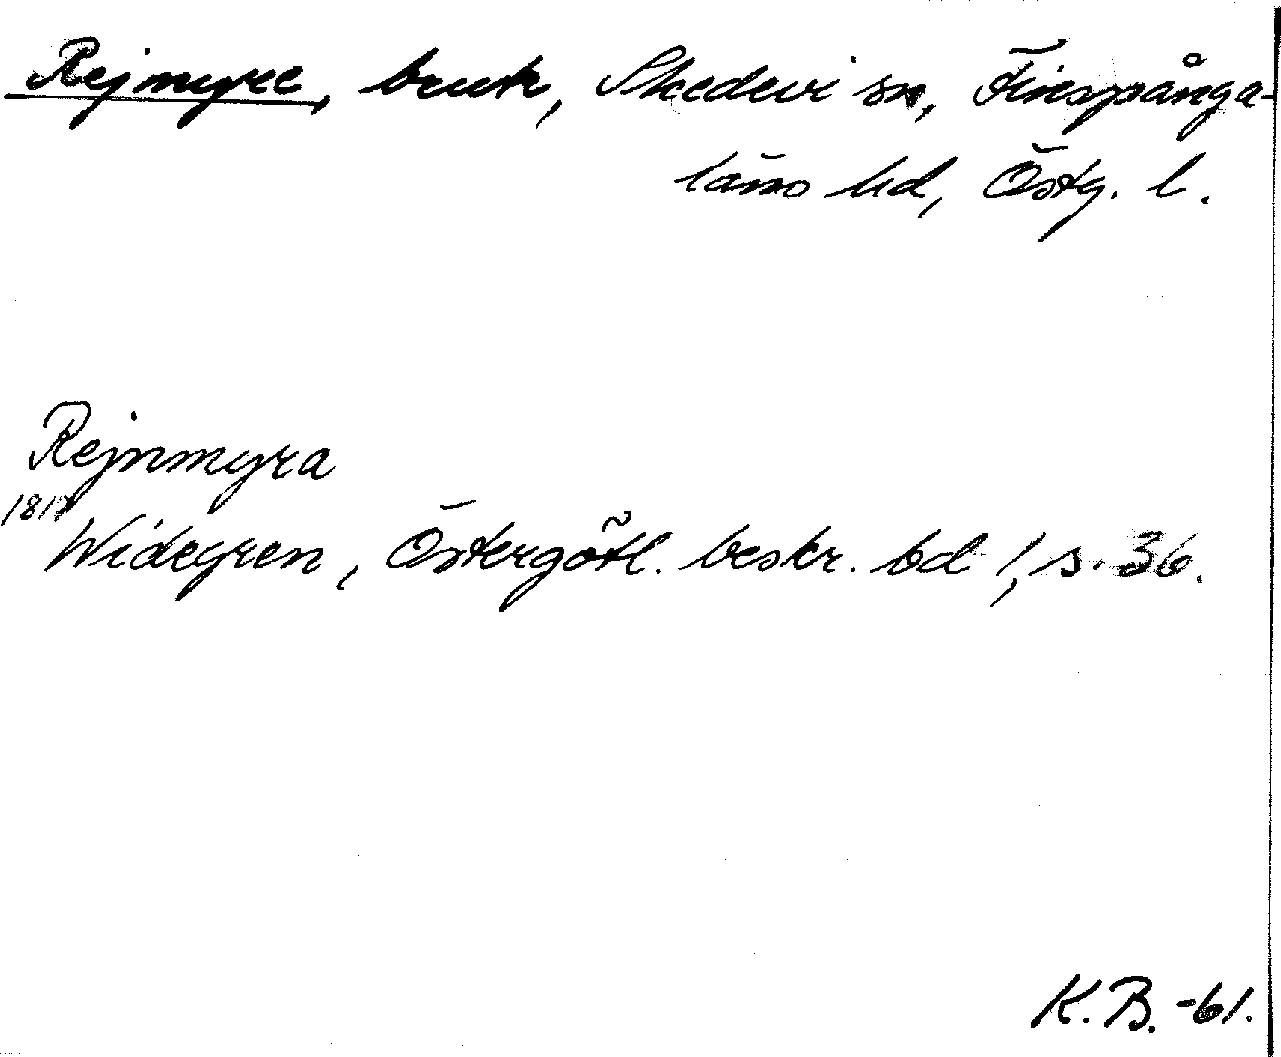 Rejmyre, bruk, Skedevi sn, Finspånga-
läns hd, Östg. l.
Rejnmyra
1817
Widegren, Östergötl. beskr. bd 1, s. 36.
K.B. -61.